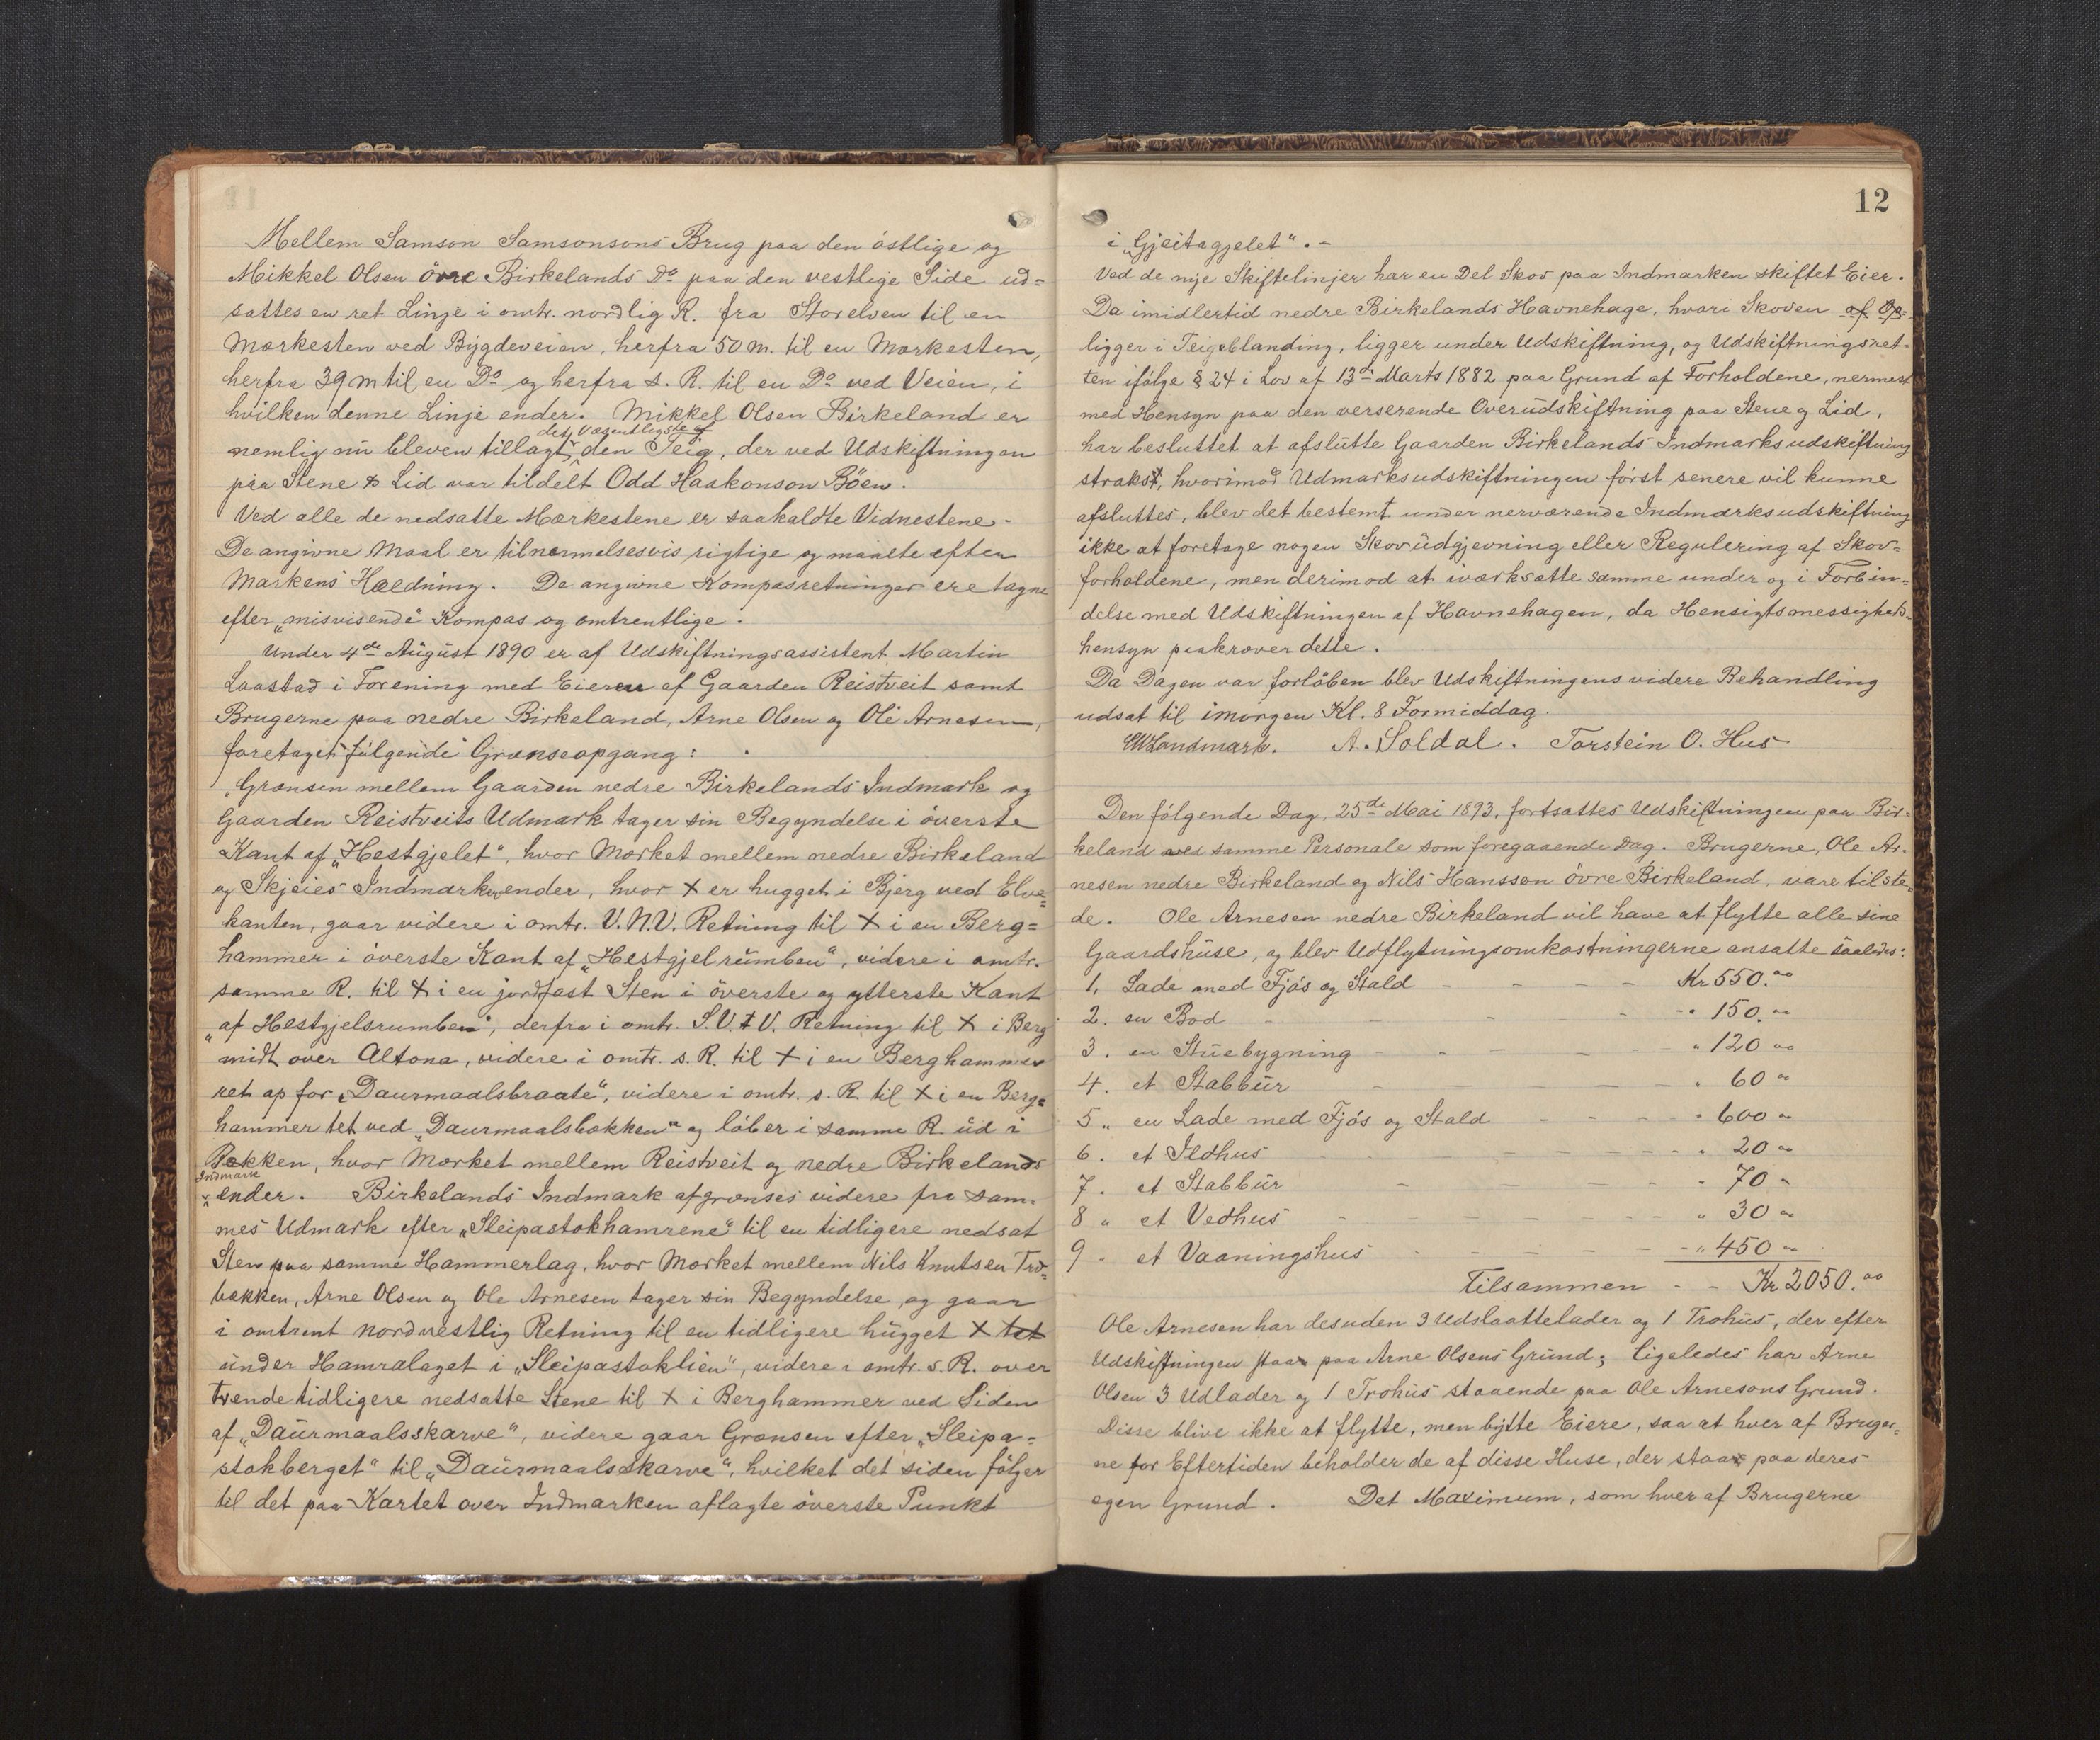 Mellem Samson Samsonsons Brug paa den östlige og
Mikkel Olsen övre Birkelands Do paa den vestlige Side ud=
sattes en ret Linje i omtr. nordlig R. fra Storelven til en
Mærkesten ved Bygdeveien, herfra 50 m. til en Mærkesten,
herfra 39 m til en Do og herfra s. R. til en Do ved Veien, i
hvilken denne Linje ender. Mikkel Olsen Birkeland er
det Væsentligste af
nemlig nu bleven tillagt den Teig, der ved Udskiftningen
paa Stene & Lid var tildelt Odd Haakonson Böen.
Ved alle de nedsatte Mærkestene er saakaldte Vidnestene.
De angivne Maal er tilnærmelsesvis rigtige og maalte efter
Markens Hældning. De angivne Kompasretninger ere tagne
efter „misvisende“ Kompas og omtrentlige.
Under 4de August 1890 er af Udskiftningsassistent Martin
Laastad i Forening med Eieren af Gaarden Reistveit samt
Brugerne paa nedre Birkeland, Arne Olsen og Ole Arnesen,
foretaget følgende Grænseopgang:
„Grænsen mellem Gaarden nedre Birkelands Indmark og
Gaarden Reistveits Udmark tager sin Begyndelse i överste
Kant af „Hestgjelet“, hvor Mærket mellem nedre Birkeland
og Skjeies Indmarker ender, hvor X er hugget i Bjerg ved Elve=
kanten, gaar videre i omtr. V.N.V. Retning til X i en Berg=
hammer i överste Kant af „Hestgjelrumben“, videre i omtr.
samme R. til X i en jordfast Sten i överste og ytterste Kant
„af Hestgjelsrumben“, derfra i omtr. S.V.t.V. Retning til X i Berg
midt over Altona, videre i omtr. s. R. til X i en Berghammer
ret op for „Daurmaalsbraate“, videre i omtr. s. R. til X i en Berg=
hammer tet ved „Daurmaalsbækken“ og löber i samme R. ud i
Bækken, hvor Mærket mellem Reistveit og nedre Birkelands
Indmark
ender. Birkelands Indmark afgrænses videre fra sam=
mes Udmark efter „Sleipastokhamrene“ til en tidligere nedsat
Sten paa samme Hammerlag, hvor Mærket mellem Nils Knutsen Trö=
bækken, Arne Olsen og Ole Arnesen tager sin Begyndelse, og gaar
i omtrent nordvestlig Retning til en tidligere hugget X tet
under Hamralaget i „Sleipastoklien“, videre i omtr. s. R. over
tvende tidligere nedsatte Stene til X i Berghammer ved Siden
af „Daurmaalsskarve“, videre gaar Grænsen efter „Sleipa=
stokberget“ til „Daurmaalsskarve“, hvilket det siden fölger
til det paa Kartet over Indmarken aflagte överste Punkt
12
i „Gjeitagjelet“. -
Ved de nye Skiftelinjer har en Del Skov paa Indmarken skiftet Eier.
Da imidlertid nedre Birkelands Havnehage, hvori Skoven af Op=
ligger i Teigeblanding, ligger under Udskiftning, og Udskiftningsret-
ten ifölge § 24 i Lov af 13de Marts 1882 paa Grund af Forholdene, nermest
med Hensyn paa den verserende Overudskiftning paa Stene og Lid,
har besluttet at afslutte Gaarden Birkelands Indmarksudskiftning
strakst, hvorimod Udmarksudskiftningen först senere vil kunne
afsluttes, blev det bestemt under nerværende Indmarksudskiftning
ikke at foretage nogen Skovudgjevning eller Regulering af Skov=
forholdene, men derimod at iværksætte samme under og i Forbin=
delse med Udskiftningen af Havnehagen, da Hensigtsmessigheds-
hensyn paakræver dette.
Da Dagen var forlöben blev Udskiftningens videre Behandling
udsat til imorgen Kl. 8 Formiddag.
Landmark. A. Soldal. Torstein O. Hus
Den fölgende Dag, 25de Mai 1893, fortsattes Udskiftningen paa Bir=
keland med samme Personale som foregaaende Dag. Brugerne, Ole Ar-
nesen nedre Birkeland og Nils Hansson övre Birkeland, vare tilste=
de. Ole Arnesen nedre Birkeland vil have at flytte alle sine
Gaardshuse, og blev Udflytningsomkostningerne ansatte saaledes:
1. Lade med Fjös og Stald - - - - Kr 550.00
2. en Bod - - - - - " 150.00
3. en Stuebygning - - - - " 120 00
4. et Stabbur - - - - " 60 "
5 " en Lade med Fjös og Stald - - - - " 600 "
6. et Ildhus - - - - " 20 "
7. et Stabbur - - - - " 70 "
8 " et Vedhus - - - - " 30 "
9 - et Vaaningshus - - - - " 450 "
Tilsammen - - Kr 2050.00
Ole Arnesen har desuden 3 Udslaattelader og 1 Trohus, der efter
Udskiftningen staar paa Arne Olsens Grund; ligeledes har Arne
Olsen 3 Udlader og 1 Trohus staaende paa Ole Arnesons Grund.
Disse blive ikke at flytte, men bytte Eiere, saa at hver af Bruger=
ne for Eftertiden beholder de af disse Huse, der staar paa deres
egen Grund. Det Maximum, som hver af Brugerne